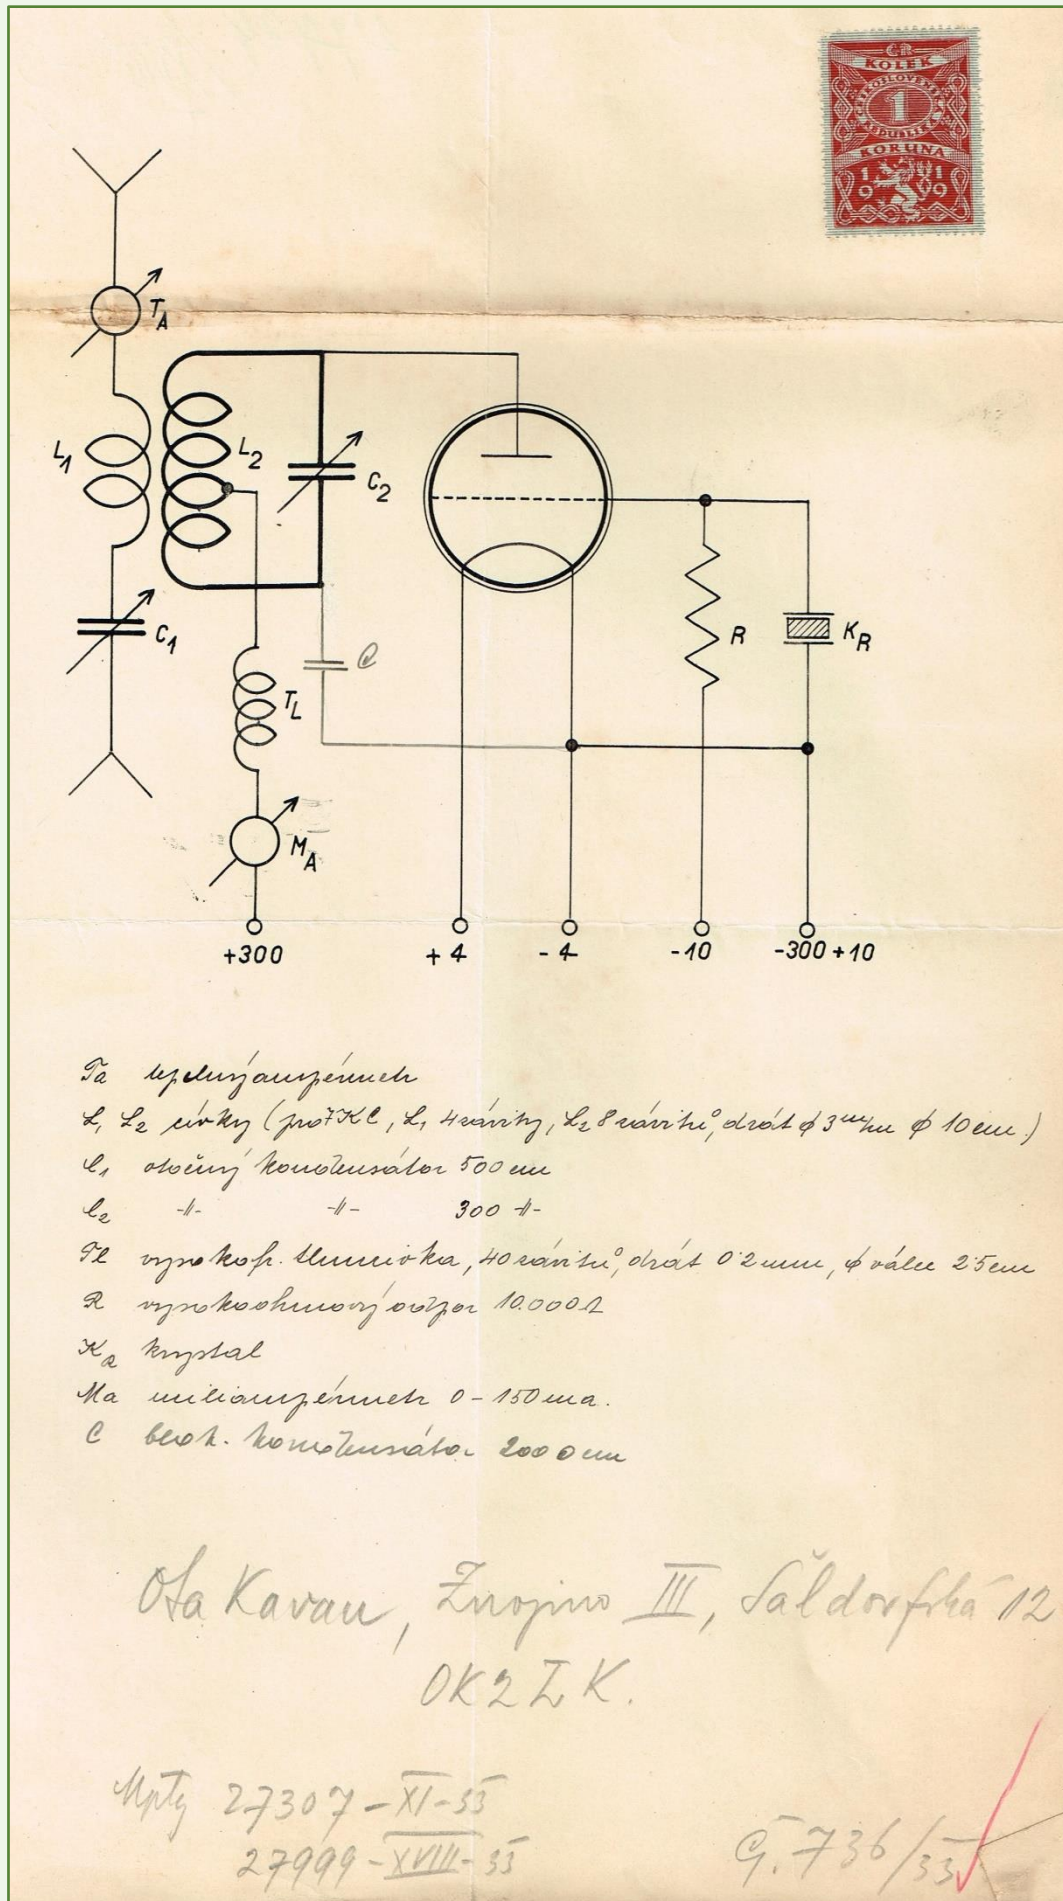 ČR
KOLEK
ČESKOSLOVENSKÁ
1
REPUBLIKA
KORUNA
1919
T_A
L_1
L_2
C_2
C_1
C
T_L
R
K_R
M_A
+300
+4
-4
-10
-300 +10
Ta tepelný ampérmetr
L_1 L_2 cívky (pro 7 KC, L_1 4 závity, L_2 8 závitů, drát ϕ 3 m/m ϕ 10 cm.)
C_1 otočný kondensátor 500 cm
C_2 -||- -||- 300 -||-
Tl vysokofr. tlumivka, 40 závitů, drát 0.2 mm, ϕ válce 2.5 cm
R vysokoohmový odpor 10.000 Ω
K_R krystal
Ma miliampérmetr 0-150 ma.
C blok. kondensátor 2000 cm
Ota Kavan, Znojmo III, Šaldorfská 12
OK2ZK.
27307-XI-33
27999-XVIII-33
736/33